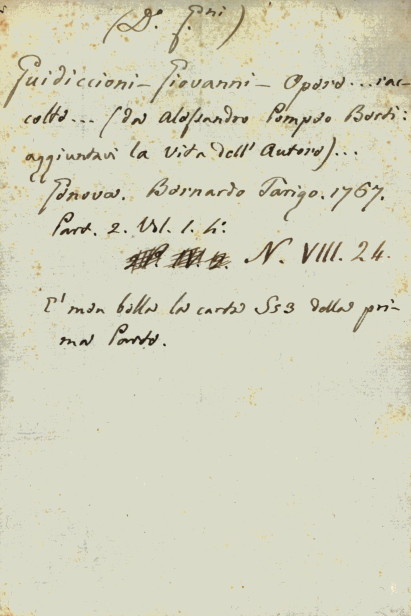 (D. G.ni)
Guidiccioni - Giovanni - Opere... rac-
colte... (da Alessandro Pompeo Berti:
aggiuntavi la Vita dell'Autore)...
Genova. Bernardo Tarigo. 1767.
Part. 2. Vol. 1. 4.º
N. VIII. 24.
E' men bella la carta Ss3 della pri-
ma Parte.